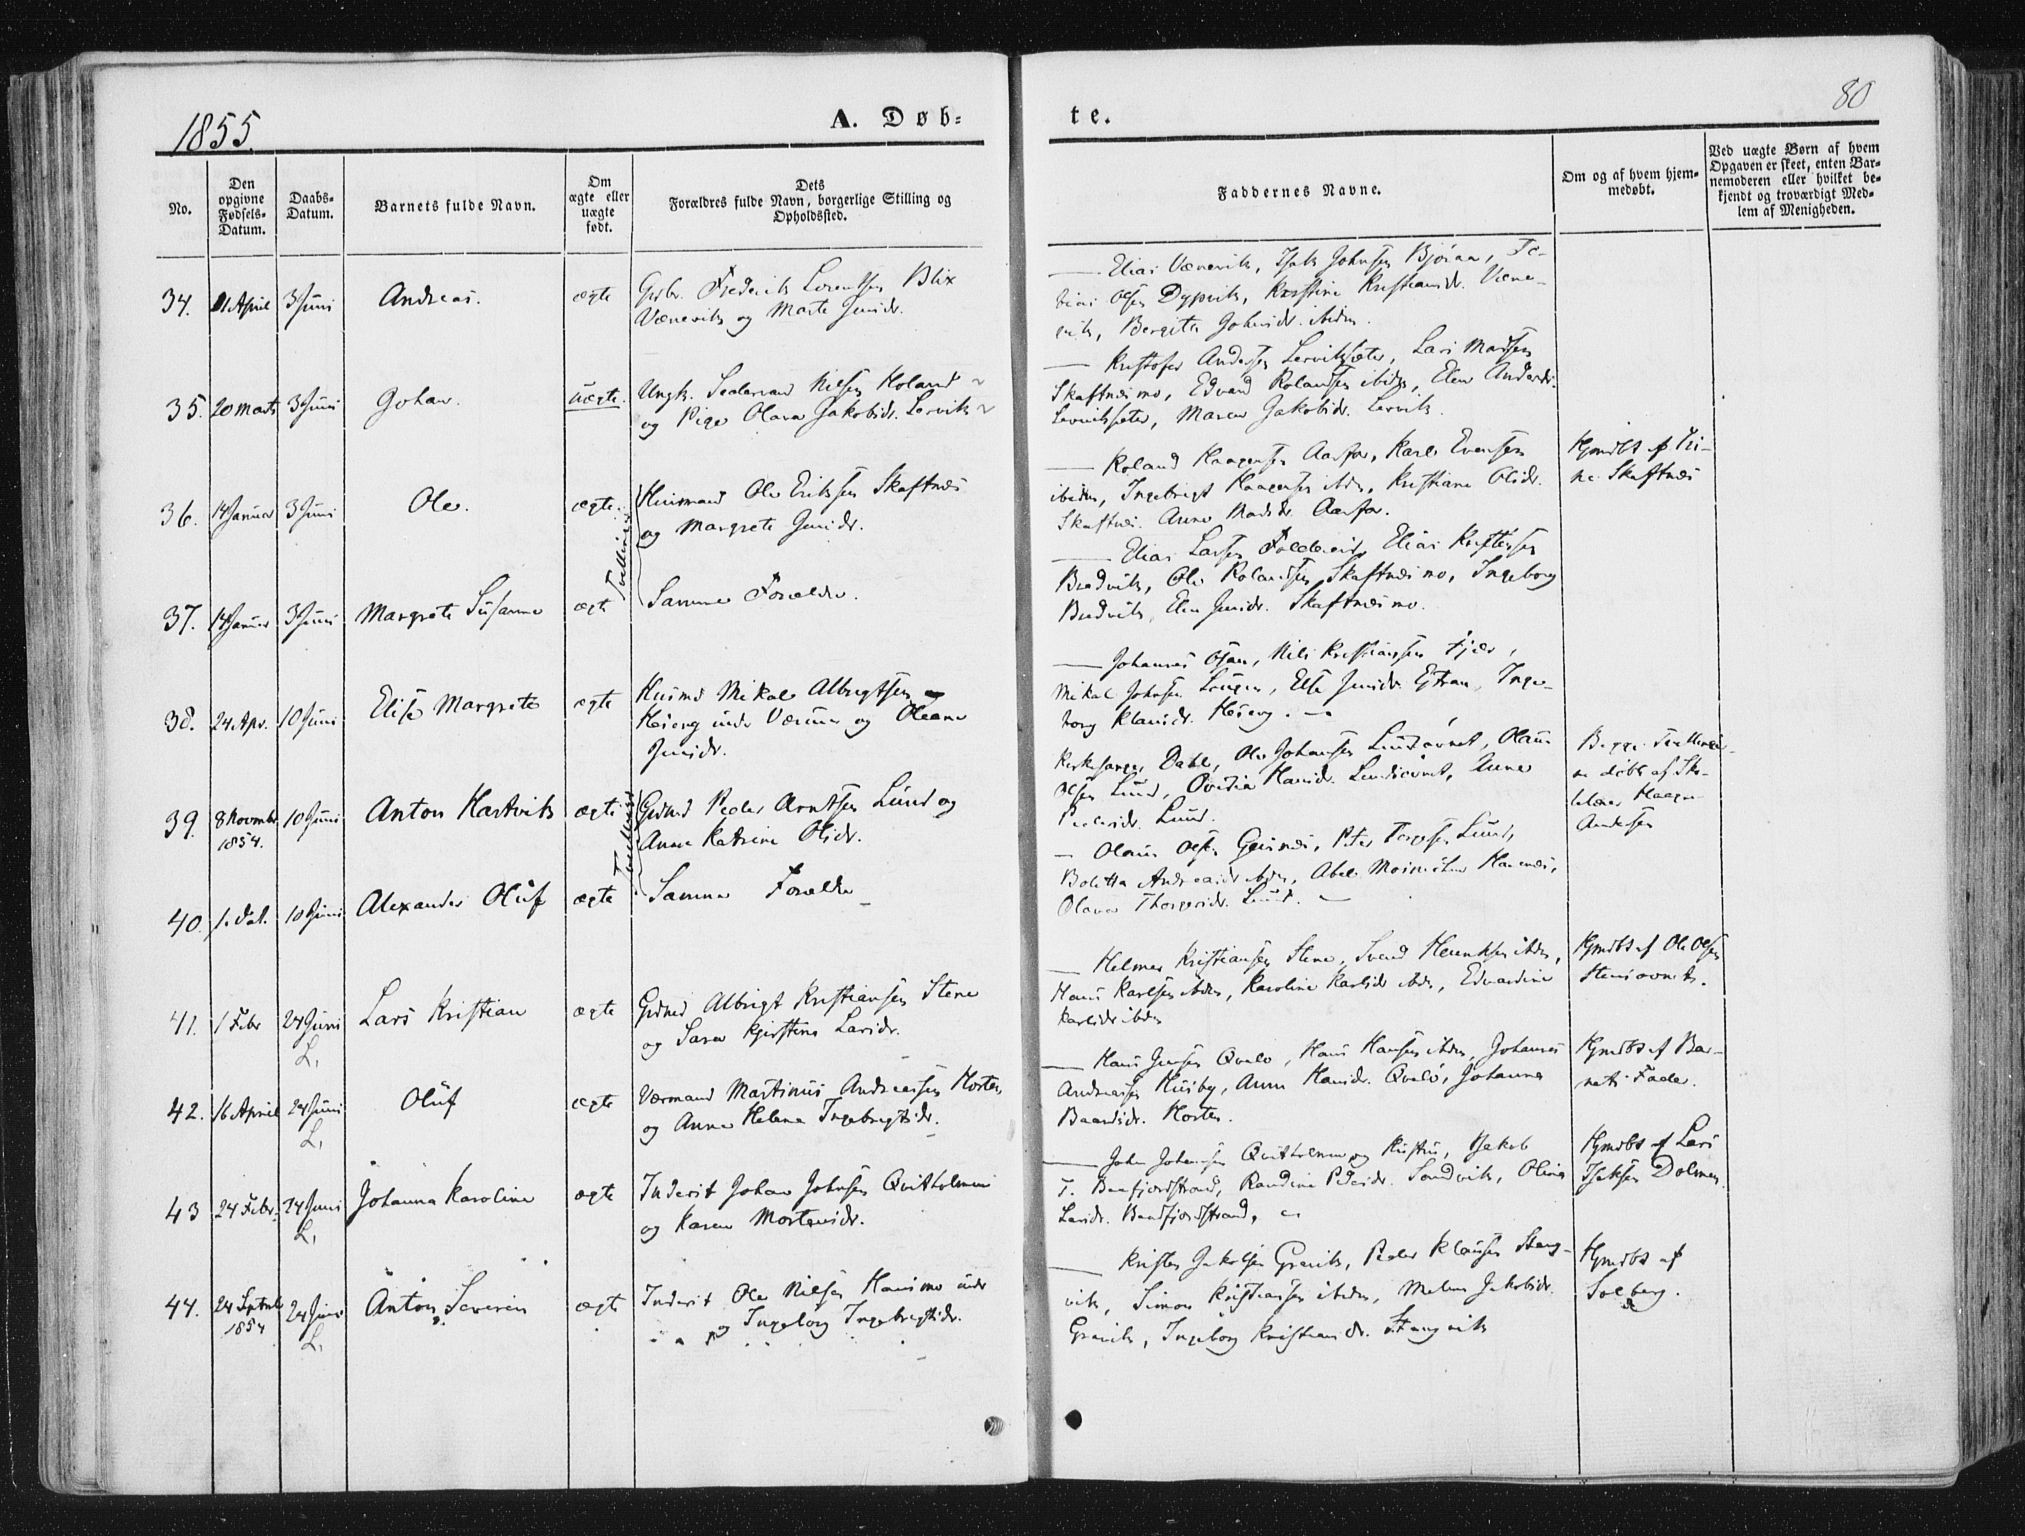 1855.
A. Døb=
te.
80
No.
Den opgivne Fødsels-Datum.
Daabs-Datum.
Barnets fulde Navn.
Om ægte eller uægte født.
Dets Forældres fulde Navn, borgerlige Stilling og Opholdssted.
Faddernes Navne.
Om og af hvem hjem-medøbt.
Ved uægte Børn af hvem Opgaven er skeet, enten Bar-nemoderen eller hvilket be-kjendt og troværdigt Med-lem af Menigheden.
34. 21 April 3 Juni Andreas. ægte
Gbr. Frederik Lorentsen Blix
Værevik og Marte Jensdr.
Elias Værevik, Isak Johnsen Bjøraa, To-
bias Olsen Dypvik, Kristine Kristiansdr. Være-
vik, Bergitte Johnsdr. ibidm.
35. 20 Marts 3 Juni Johan. uægte.
Ungk. Nilsen Holand
og Pige Olava Jakobsdr. Lervik
Kristofer Andersen Lerviksæter, Lars Madsen
Skaftnæsmo, Edvard Rolandsen ibidm, Elen Andersdr.
Lerviksæter, Maren Jakobsdr. Lervik.
36. 14 Januar 3 Juni Ole. ægte.
Tvillinger
Husmand Ole Eriksen Skaftnæs
og Margrete Jensdr.
Roland Haagensen Aarfor, Karl Evensen
ibidm, Ingebrigt Haagensen ibdm, Kristiane Olsdr.
Skaftnæs. Anne Madsdr. Aarfor.
Hjmdbt af Tri-
ne Skaftnæs
37. 14 Januar 3 Juni Margrete Susanna ægte
Samme Forældre.
Elias Larsen Elias Kristensen
Bradvik, Ole Rolandsen Skaftnæsmo, Ingeborg
Bradvik, Elen Jensdr. Skaftnæsmo.
38. 24 Apr. 10 Juni Elise Margrete ægte
Husmd Mikal Albrigtsen
Høierg under Værum og Oleana
Jensdr.
Johannes Nils Kristiansen Fjær,
Mikal Johnsen Else Jensdr. Inge-
borg Klausdr. Høierg.
39. 8 Novmbr 1854. 10 Juni Anton Hartvik ægte
Tvillinger
Grdmd Peder Arntsen Lund og
Anne Katrine Olsdr.
Kirkesanger Dahl, Ole Johansen Olaus
Olsen Lund, Ovidia Hansdr. Anne
Pedersdr. Lund.
Begge Tvillinger-
ne døbt af Sko-
lelærer Haagen
Andersen
40. s. Dat. 10 Juni Alexander Oluf ægte
Samme Forældre
Olaus Olsen Peter Torgersen Lund,
Boletta Andreasdr ibdm, Abel
Olava Thorgersdr. Lund.
41. 1 Febr 24 Juni L. Lars Kristian ægte
Grdmd Albrigt Kristiansen Stene
og Sara Kjerstina Larsdr.
Helmer Kristiansen Stene, Svend Henriksen ibdm,
Hans Karlsen ibdm, Karoline Karlsdr ibdm, Edvardine
Karlsdr ibdm
Hjmdbt af Ole Olsen
42. 16 April 24 Juni L. Oluf ægte
Værmand Martinus Andreassen Horten
og Anne Helena Ingebrigtsdr.
Hans Jensen Qvalø, Hans Hansen ibdm, Johannes
Andreassen Husby, Anne Hansdr. Qvalø, Johanna
Baardsdr. Horten.
Hjmdbt af Bar-
nets Fader.
43 24 Febr. 24 Juni L. Johanna Karoline ægte
Inderst Johan Johnsen Qvitholmen
og Karen Mortensdr.
John Johansen Qvitholmen og Hustru, Jakob
T. Randine Pedersdr. Sandvik, Olina
Larsdr.
Hjmdbt af Lars
Isaksen Dolmen.
44. 24 Sptmbr 1854 24 Juni L. Anton Severin ægte
Inderst Ole Nilsen Hansmo
og Ingeborg Ingebrigtsdr.
Krister Jakobsen Grevik, Peder Klausen Stang-
vik, Simon Kristiansen ibidm, Jakobsdr.
Grevik, Ingeborg Kristiansdr. Stangvik
Hjmdbt af
Solberg.